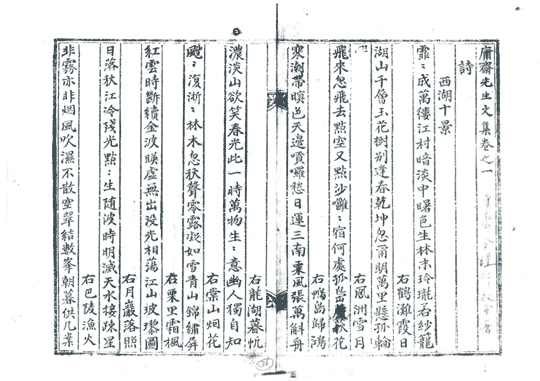 庸齋先生文集卷之一
詩
西湖十景
霏〻成萬縷江村暗淡中曙色生林末玲瓏右紗籠
右鶴灘霞日
湖山千層玉花樹別逢春乾坤忽爾開萬里懸孤輪
右風洲雪月
飛來忽飛去點空又點沙嗈〻宿何處孤島秋花
右鴨島歸鴻
寒潮帶暝色天邊噴囉愁日運三南粟風張萬斛舟
右龍湖暮帆
濃淡山欲笑春光此一時萬物生〻意幽人獨自知
右棠山烟花
颼〻復淅〻林木忽秋聲寒露凝如雪青山錦繡屏
右栗里霜楓
紅雲時斷續金波暎虛無出沒光相蕩江山玻瓈圖
右月巖落照
日落秋江冷殘光點〻生隨波時明滅天水接疎星
右巴陵漁火
非霧亦非烟風吹濕不散空翠結數峯朝暮供几案